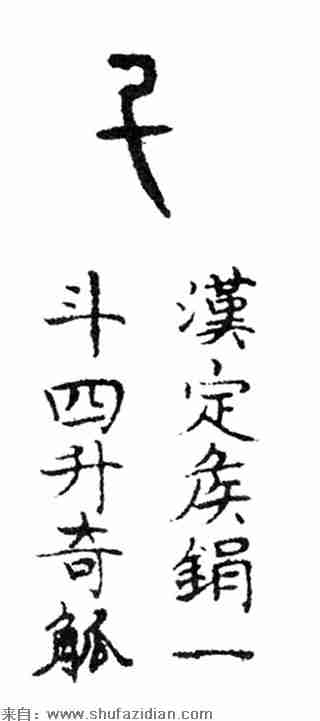 漢定矦鋗一
斗四升奇觚
来自：www.shufazidian.com